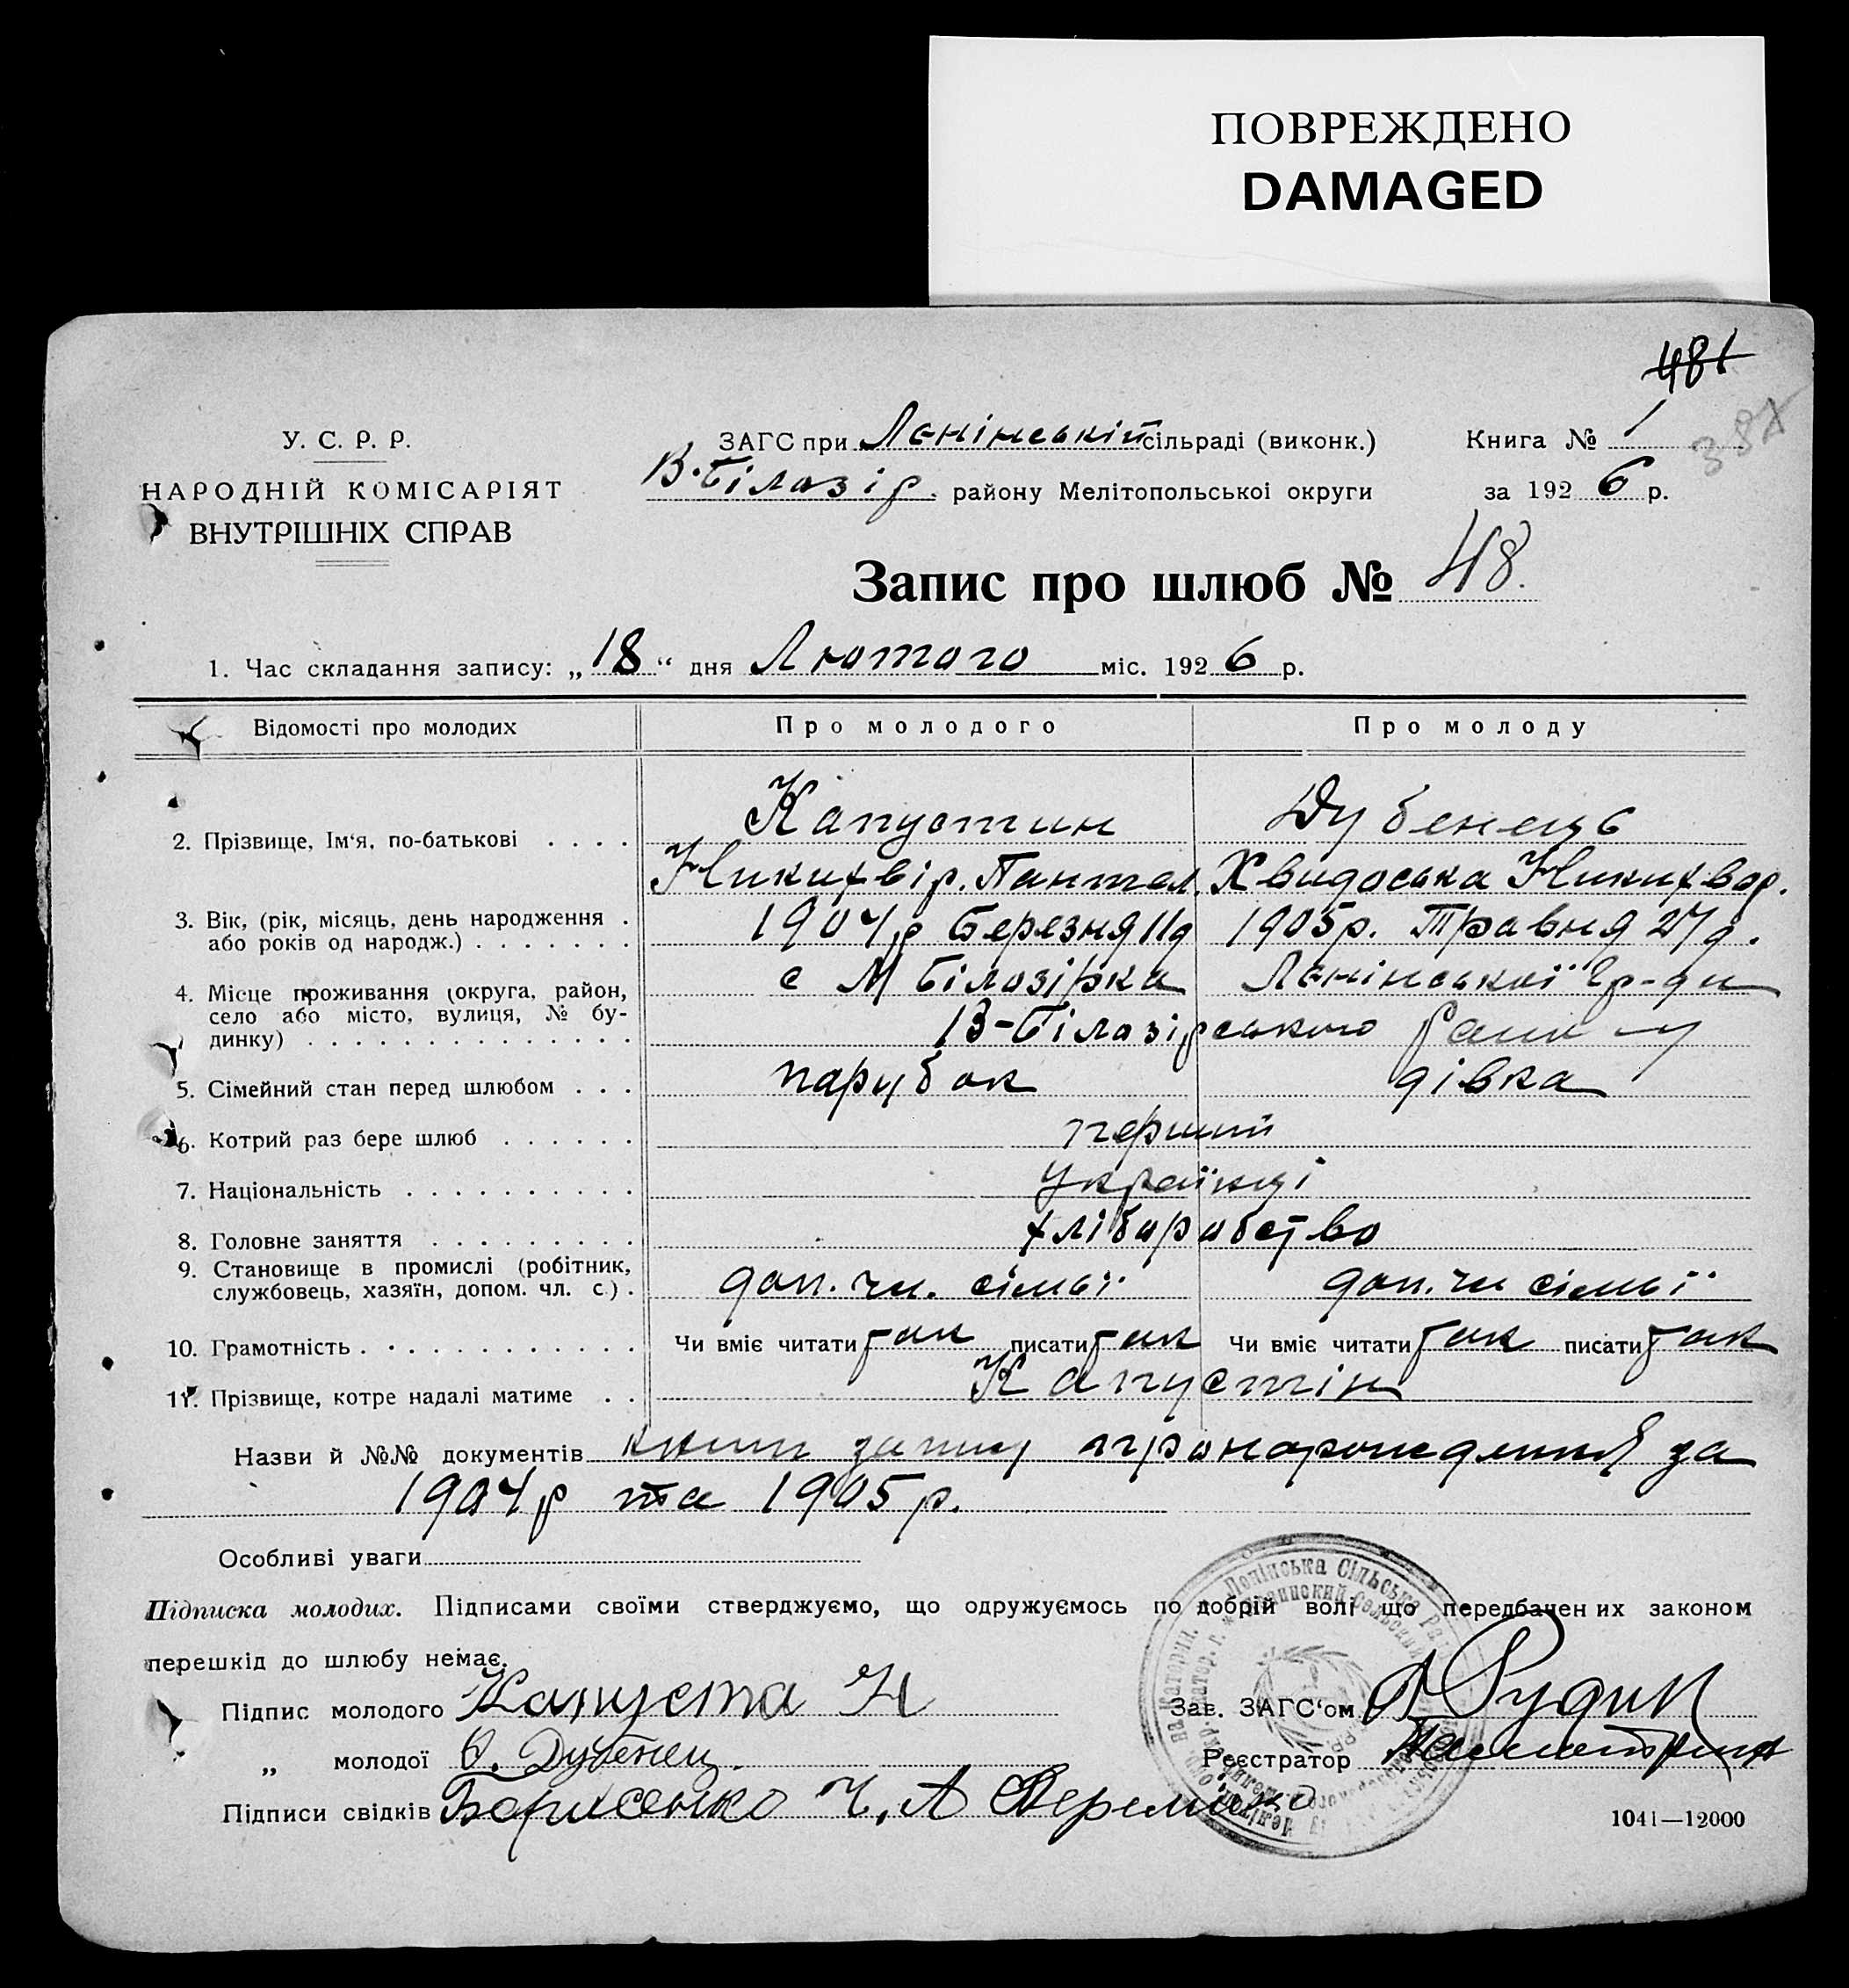 ПОВРЕЖДЕНО
DAMAGED
481
381
У. С. Р. Р.
НАРОДНІЙ КОМІСАРІЯТ
ВНУТРІШНІХ СПРАВ
ЗАГС при Ленінській сільраді (виконк.) Книга № 1
В-Білозір. району Мелітопольської округи за 1926 р.
Запис про шлюб № 48.
1. Час складання запису: „18“ дня Лютого міс. 1926 р.
Відомості про молодих Про молодого Про молоду
2. Прізвище, Ім‘я, по-батькові . . . . Капустин Дубенець
Никихвір. Пантел. Хвидоська Никихвор.
3. Вік, (рік, місяць, день народження . 1904р Березня 11д 1905р. Травня 27д.
або років од народж.) . . . . . . .
4. Місце проживання (округа, район, с М Білозірка Ленінської гр-ди
село або місто, вулиця, № бу-
динку) . . . . . . . . . . . . . . В-Білозірського району
5. Сімейний стан перед шлюбом . . . парубок дівка
6. Котрий раз бере шлюб . . . . . . перший
7. Національність . . . . . . . . . . українці
8. Головне заняття . . . . . . . . . хліборобство
9. Становище в промислі (робітник,
службовець, хазяїн, допом. чл. с.) . доп. чл. сімьї доп. чл сімьї
10. Грамотність . . . . . . . . . . . . Чи вміє читати так писати так Чи вміє читати так писати так
11. Прізвище, котре надалі матиме . . Капустін
Назви й №№ документів книги запису про народження за
1904р та 1905р.
Особливі уваги
Підписка молодих. Підписами своїми стверджуємо, що одружуємось по добрій волі що передбачених законом
перешкід до шлюбу немає.
Підпис молодого Капуста Н Зав. ЗАГС‘ом
„ молодої Ф. Дубенец. Реєстратор
Підписи свідків Борисенко А Яременко
1041—12000
Ленінська Сільська Рада